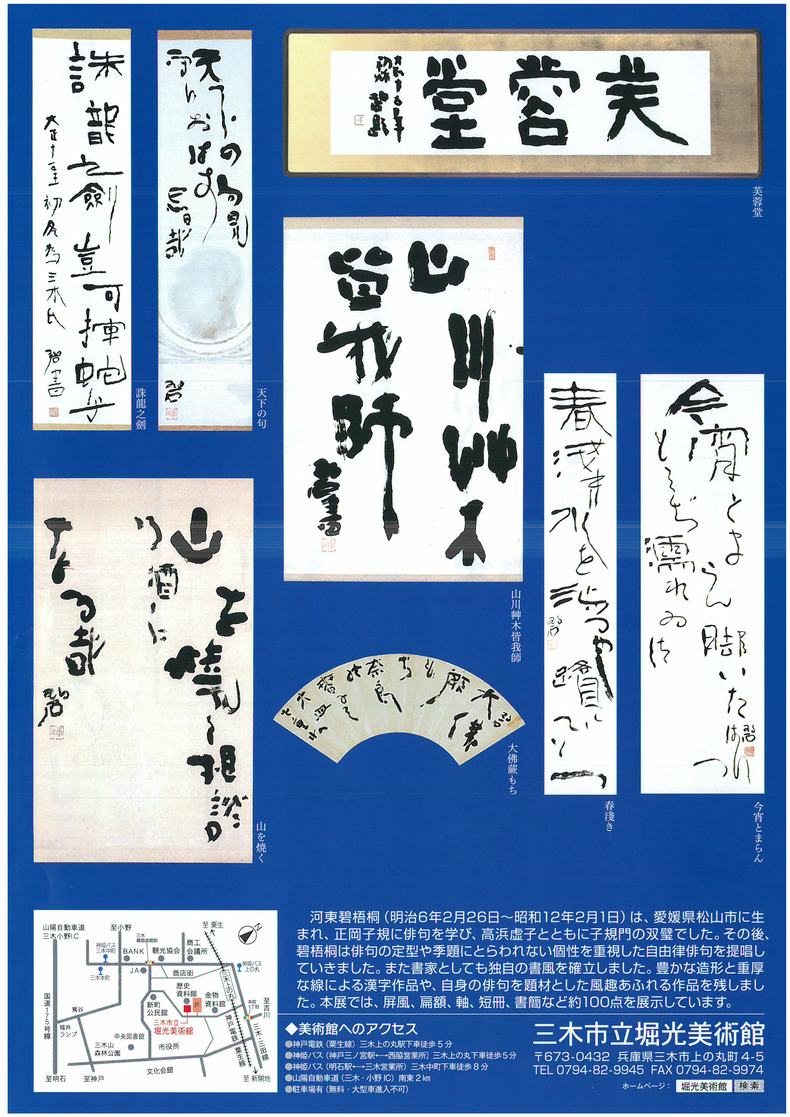 芙蓉堂
誅龍之劍
天下の句
山川艸木皆我師
山川艸木
皆我師
誅龍之劍豈可揮蛇
春浅き水を渉るや鷺一つ
大佛蕨もち
山を焼く
山を焼く相談
の酒に
なる哉
碧
春淺き
今宵とまらん
河東碧梧桐（明治6年2月26日～昭和12年2月1日）は、愛媛県松山市に生
まれ、正岡子規に俳句を学び、高浜虚子とともに子規門の双璧でした。その後、
碧梧桐は俳句の定型や季題にとらわれない個性を重視した自由律俳句を提唱し
ていきました。また書家としても独自の書風を確立しました。豊かな造形と重厚
な線による漢字作品や、自身の俳句を題材とした風趣あふれる作品を残しまし
た。本展では、屏風、扁額、軸、短冊、書簡など約100点を展示しています。
山陽自動車道
三木小野I.C
至小野
至粟生
神姫バス
三木中町
三木本町
BANK
観光協会
商工
会議所
JA
商店街
神姫バス
上の丸
国道175号線
福井
ランプ
鴬谷
新町
公民館
歴史
資料館
金物
資料館
P
三木市立
堀光美術館
三木上の丸
本町
1丁目
至吉川
中央図書館
市役所
三木山
森林公園
文化会館
神戸電鉄（粟生線）
三木・三田線
至明石
至神戸
至新開地
◆美術館へのアクセス
●神戸電鉄（粟生線）三木上の丸駅下車徒歩5分
●神姫バス（神戸三ノ宮駅←→西脇営業所）三木上の丸下車徒歩5分
●神姫バス（明石駅←→三木営業所）三木中町下車徒歩8分
●山陽自動車道（三木・小野IC）南東2km
●駐車場有（無料・大型車進入不可）
三木市立堀光美術館
〒673-0432 兵庫県三木市上の丸町4-5
TEL 0794-82-9945 FAX 0794-82-9974
ホームページ： 堀光美術館 検索